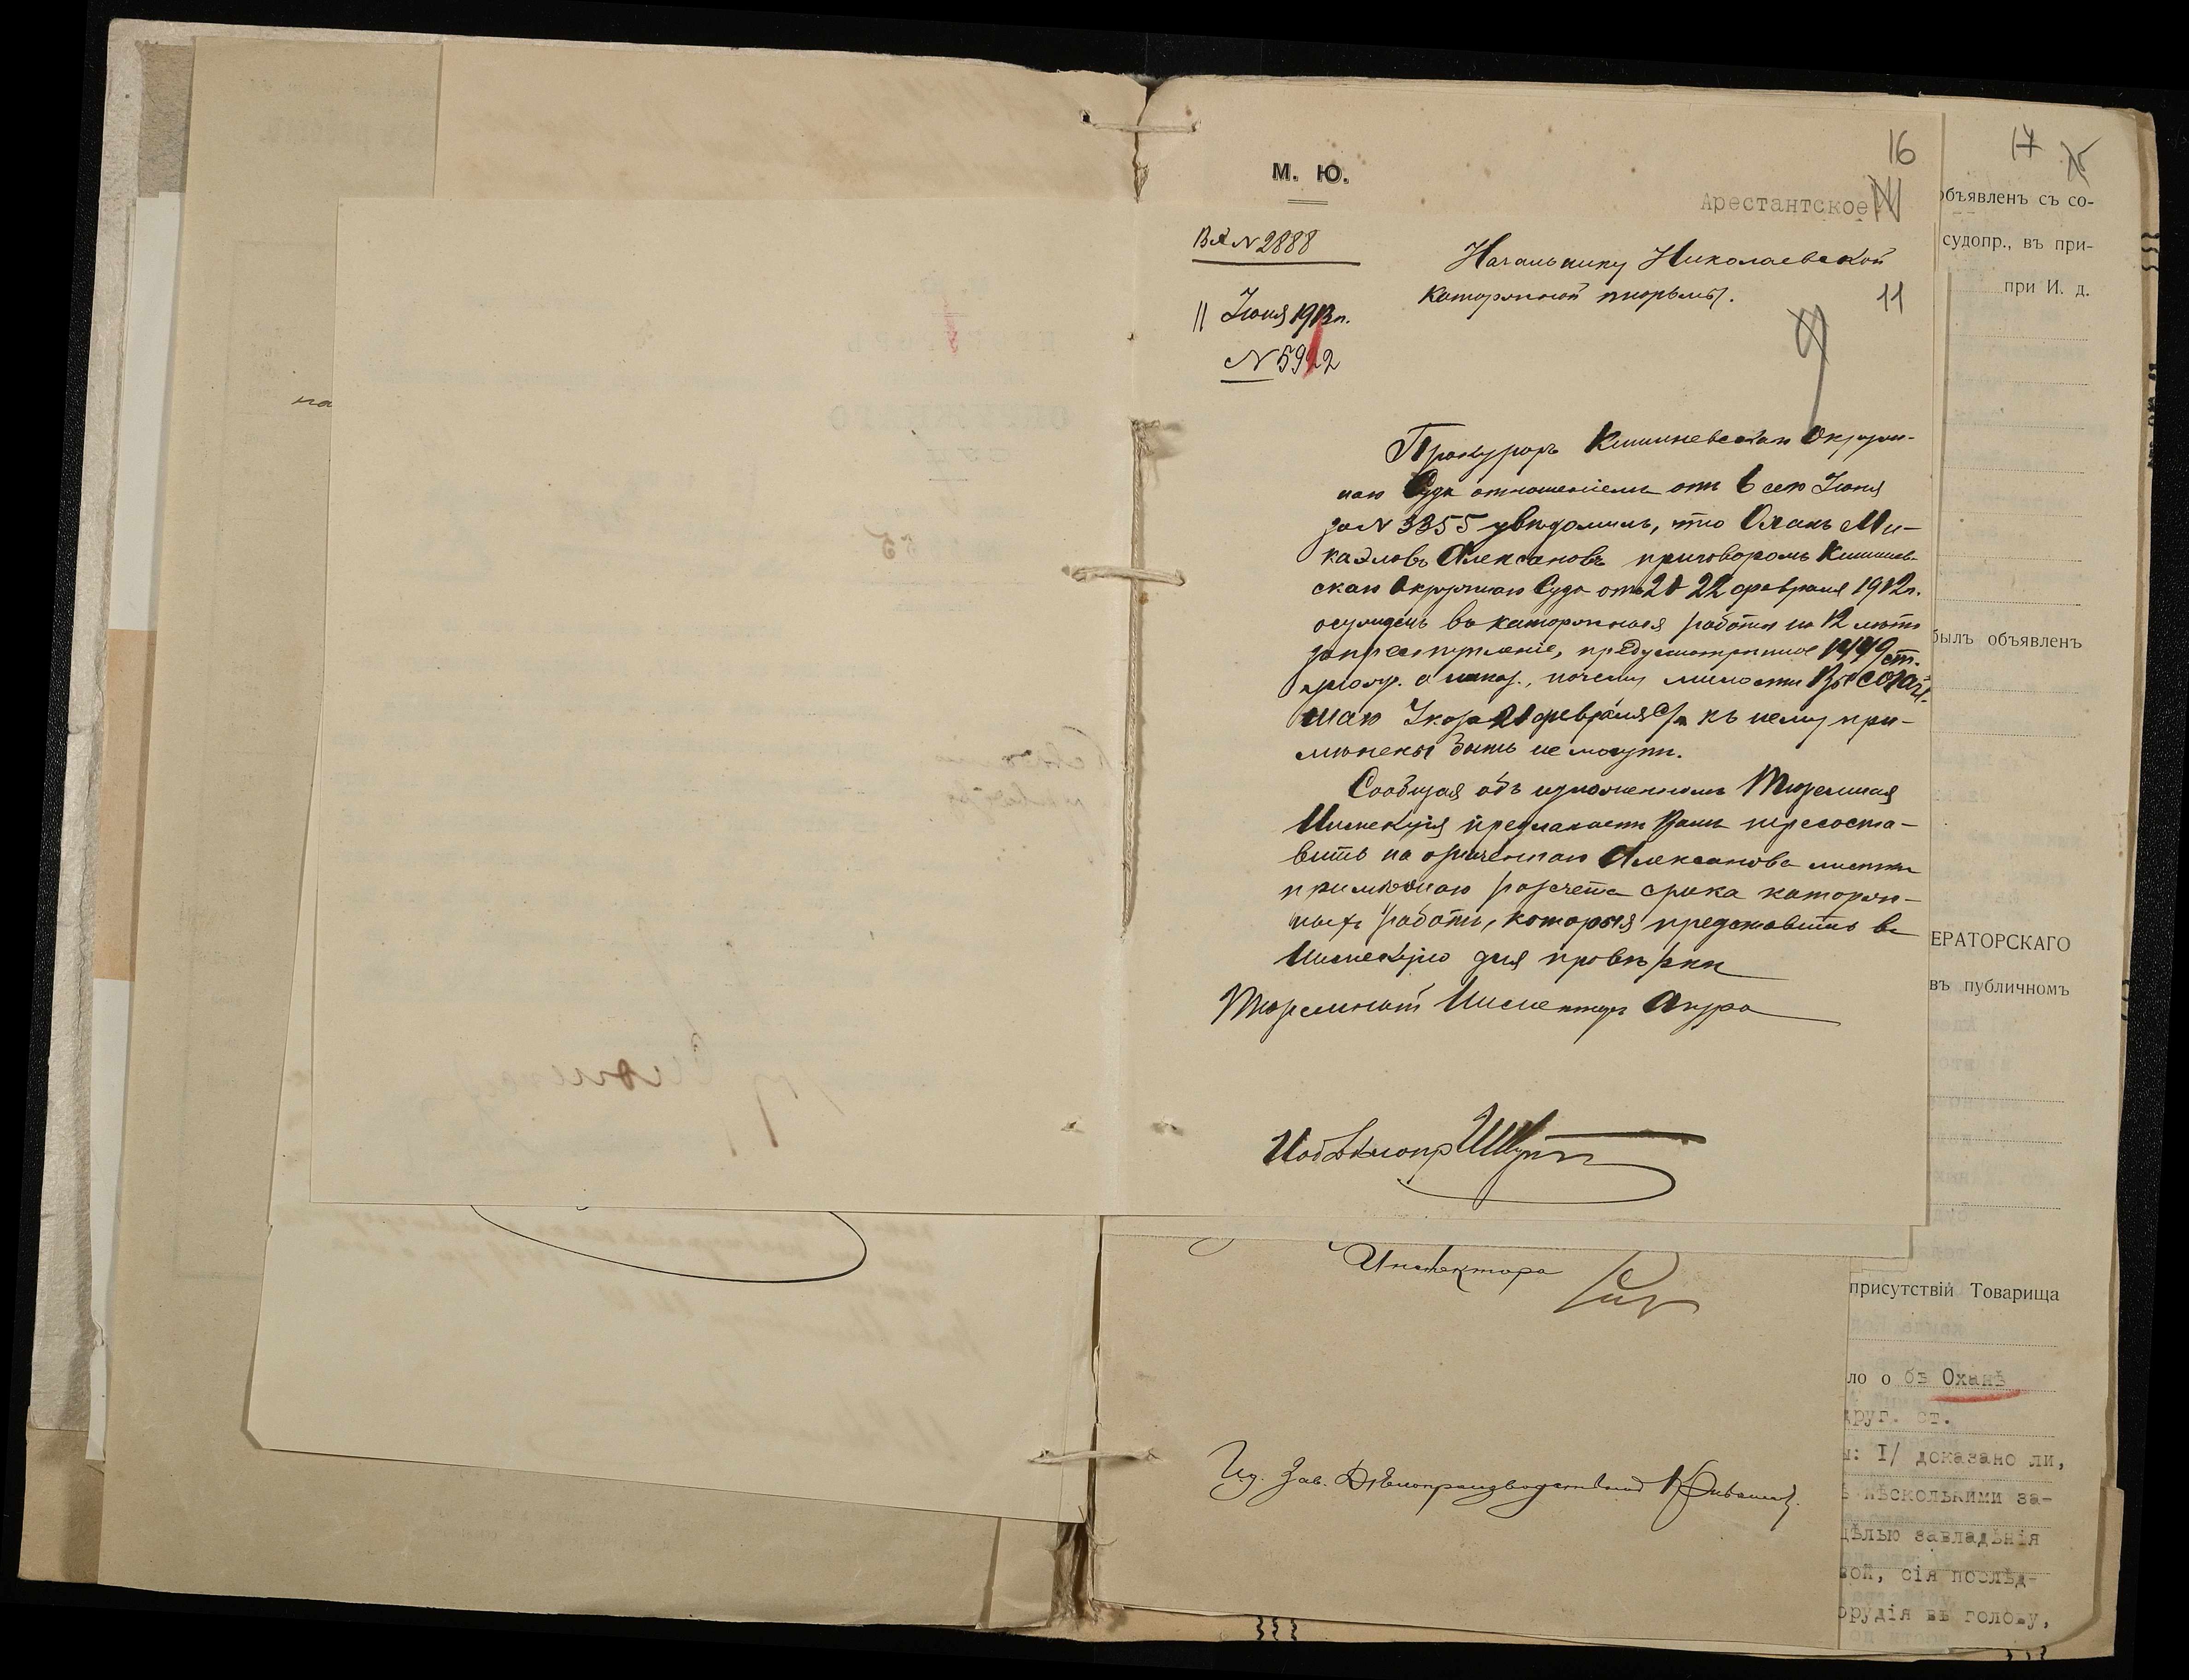 16
М. Ю.
Арестантское
Вх N 2888
Начальнику Николаевской
каторжной тюрьмы.
11
11 Іюня 1913 г.
N 5922
9
Прокуроръ Кишиневскаго Окруж-
наго Суда отношеніемъ отъ 6 сего Іюня
за N 3355 увѣдомилъ, что Оханъ Ми-
каэловъ Алексановъ приговоромъ Кишинев-
скаго Окружнаго Суда отъ 20 22 февраля 1912 г.
осужденъ въ каторжныя работы на 12 лѣтъ
за преступленіе, предусмотрѣнное 1449 ст.
улож. о наказ., почему милости Высочай-
шаго Указа 21 февраля с/г къ нему при-
мѣнены быть не могутъ.
Сообщая объ изложенномъ Тюремная
Инспекція предлагаетъ Вамъ пересоста-
вить на означеннаго Алексанова листки
примѣрнаго расчета срока каторж-
ныхъ работъ, которыя представить въ
Инспекцію для провѣрки
Тюремный Инспекторъ Анура
Инспектора
Ид. Зав. Дѣлопроизводствомъ
на
17
объявленъ съ со-
судопр., въ при-
при И. д.
былъ объявленъ
ЕРАТОРСКАГО
въ публичномъ
присутствій Товарища
ло о бъ Оханѣ
друг. ст.
ы: I/ доказано ли,
нѣсколькими за-
цѣлью завладѣнія
ой, сія послѣд-
орудія въ голову,